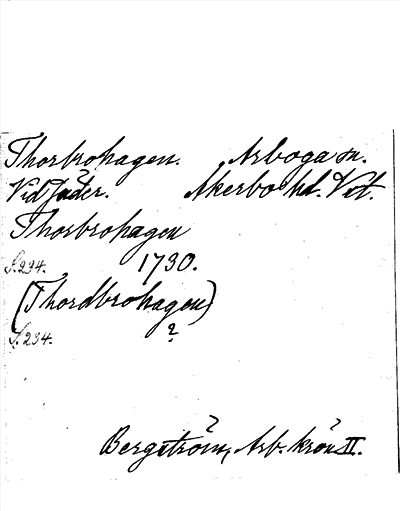 Thorbrohagen. Arboga sn.
Vid Jäder. Åkerbo hd. Vstl.
Thorbrohagen
S.234. 1730.
(Thordbrohagen)
S.234. ?
Bergström, Arb. krön. II.